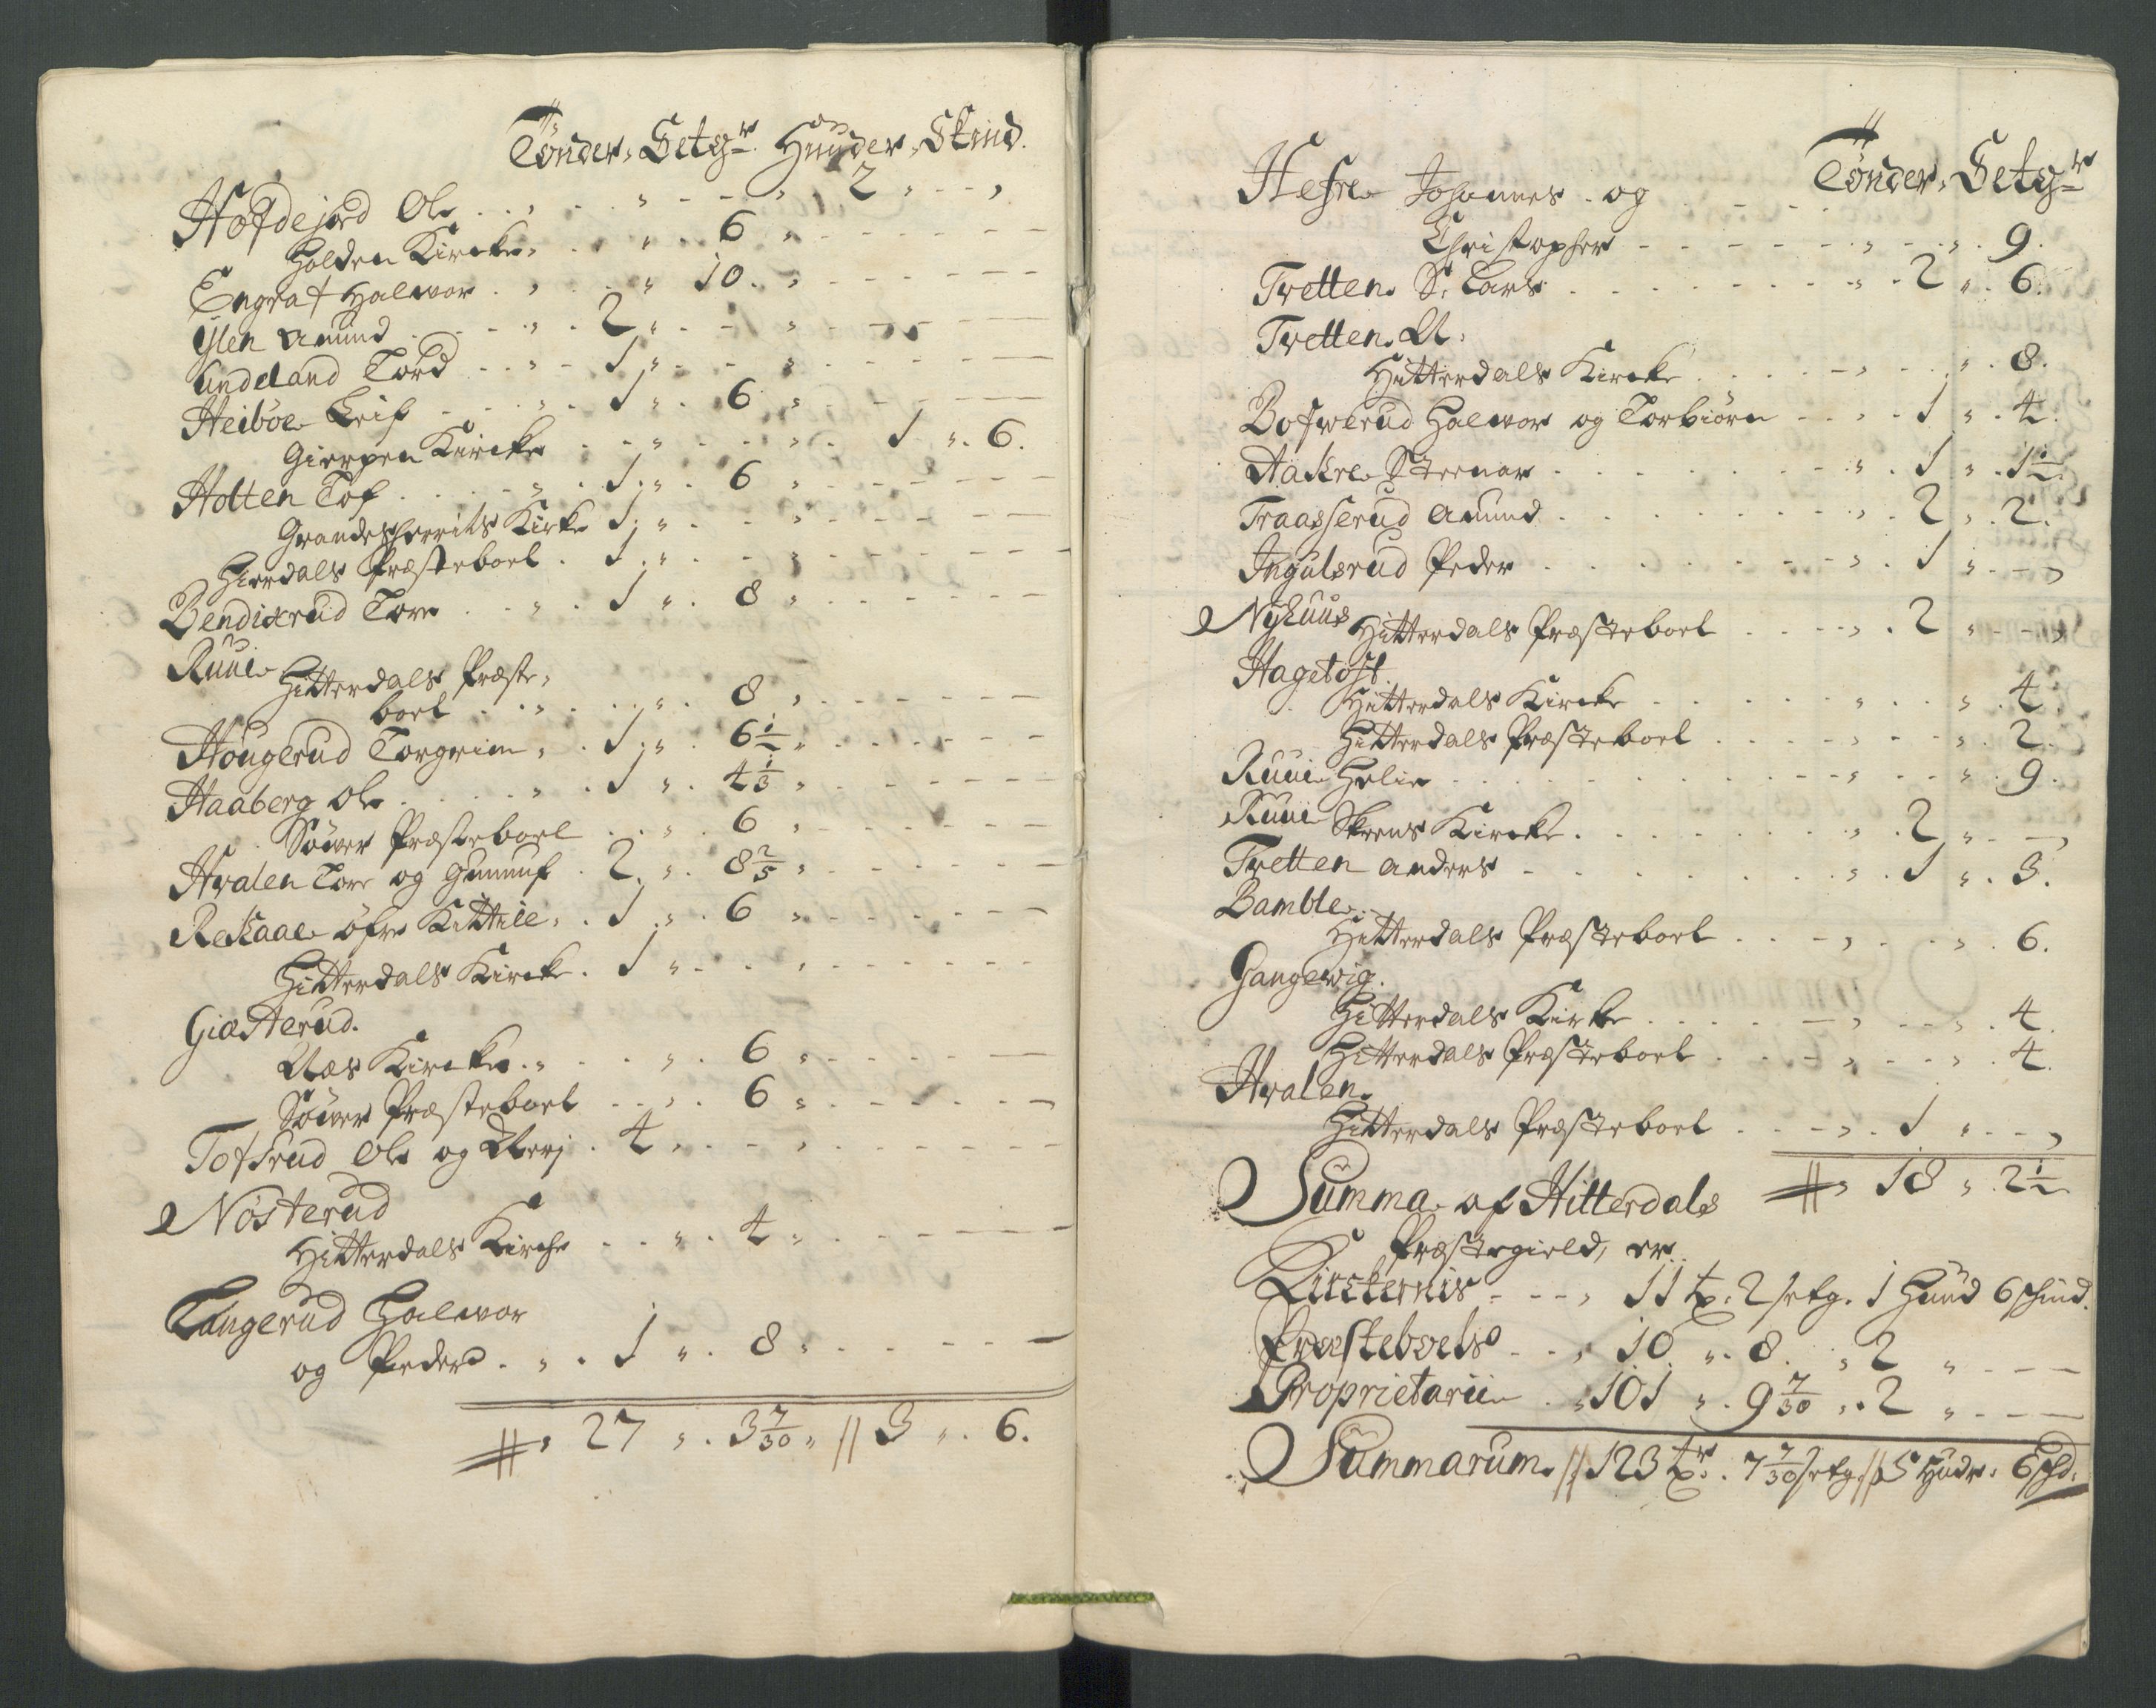 Tønder, Setgr. Huuder, Skind.
Hofdejord Ole . . 2
Holden Kircke, . 6
Engraf Halwor . 10.
Ylen Amund . 2
Lindeland Tord . 1
Heiböe Leif . 1 . 6
Gierpen Kircke . 1 . 6.
Holten Tof . 1 . 6
Grandesherrits Kirke 1
Hierdals Præsteboel . 1
Bendixrud Tore . 1 . 8
Ruue Hitterdals Præste,
boel . 8
Hougerud Torgrim, . 1 . 6½
Haaberg Ole . 1 . 4 1/3
Söwer Præsteboel . 6
Hvalen Tore og Gunnuf . 2 . 8 2/5
Rekaae öfre Kittile, . 1 . 6
Hitterdals Kircke . 1
Giæsterud.
Næs Kircke . 6
Söwer Præsteboel . 6
Tofsrud Ole og . 4
Nösterud
Hitterdals Kirche . 4
Tangerud Halwor
og Peder . 1 . 8
27 . 3 7/30 // 3 . 6.
Tønder, Setgr
Hesre Johannes og
Christopher . 9.
Tvetten S. Lars . 2 . 6.
Tvetten N.
Hitterdals Kircke . 8.
Bofwerud Halwor og Torbiörn . 1 . 4.
Aakre Steenar . 1 . 1½
Traasserud Amund . 2 . 2.
Ingulsrud Peder . 1
Nyhuus Hitterdals Præsteboel . 2
Hagetoft.
Hitterdals Kircke . 4
Hitterdals Præsteboel . 2.
Ruue Helie . 9.
Ruue Skeens Kircke . 2
Tvetten Anders . 1 . 3.
Bamble.
Hitterdals Præsteboel . 6.
Gangewig.
Hitterdals Kirke . 4.
Hitterdals Præsteboel . 4.
Hvalen.
Hitterdals Præsteboel . 1
Summa af Hitterdals 18 . 2½
Præstegield, er
Kirckernis . 11 tr. 2 setg. 1 Huud 6 schind.
Præsteboels . 10 . 8. 2
Proprietarii . 101 . 9 7/30 . 2
Summarum // 123 tr. 7 7/30 setg. // 5 Hudr. 6 schd.